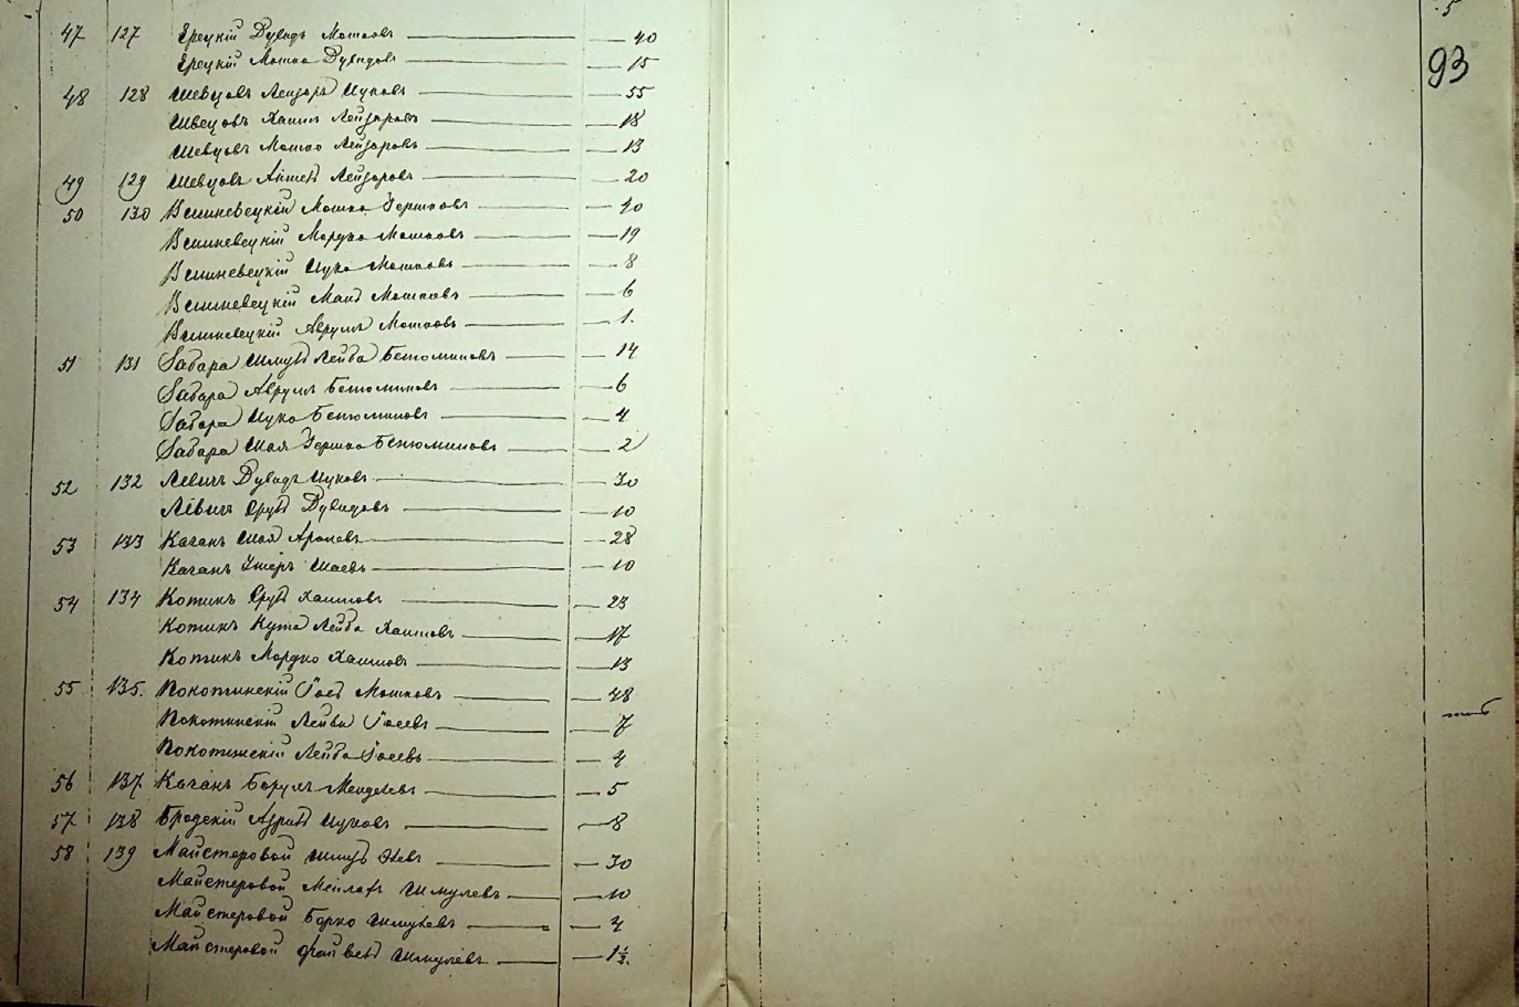 93
47 127 Ерецкій Дувидъ Мошковъ — 40
Ерецкій Мошко Дувидовъ — 15
48 128 Шевцовъ Лейзоръ Ицковъ — 55
Швецовъ Хаимъ Лейзоровъ — 18
Шевцовъ Мошко Лейзоровъ — 13
49 129 Шевцовъ Лейзоровъ — 20
50 130 Вишневецкій Мошко Гершковъ — 40
Вишневецкій Мордко Мошковъ — 19
Вишневецкій Ицко Мошковъ — 8
Вишневецкій Мошковъ — 6
Вишневецкій Аврумъ Мошковъ — 1.
51 131 Забара Шмуль Лейба Бенюминовъ — 14
Забара Аврумъ Бенюминовъ — 6
Забара Ицко Бенюминовъ — 4
Забара Шая Гершко Бенюминовъ — 2
52 132 Левитъ Дувидъ Ицковъ — 30
Левитъ Сруль Дувидовъ — 10
53 133 Каганъ Шая Ароновъ — 28
Каганъ Шаевъ — 10
54 134 Котикъ Сруль Хаимовъ — 23
Котикъ Нута Лейба Хаимовъ — 17
Котикъ Мордко Хаимовъ — 13
55 135. Покотинскій Госъ Мошковъ — 48
Покотинскій Лейви Госевъ — 7
Покотинскій Лейба Госевъ — 4
56 137 Каганъ Борухъ Менделевъ — 5
57 138 Бродскій Азриль Ицковъ — 8
58 139 Майстеровой Шмуль — 30
Майстеровой Мейлахъ Шмулевъ — 10
Майстеровой Борко Шмулевъ — 4
Майстеровой Файвель Шмулевъ — 1½.